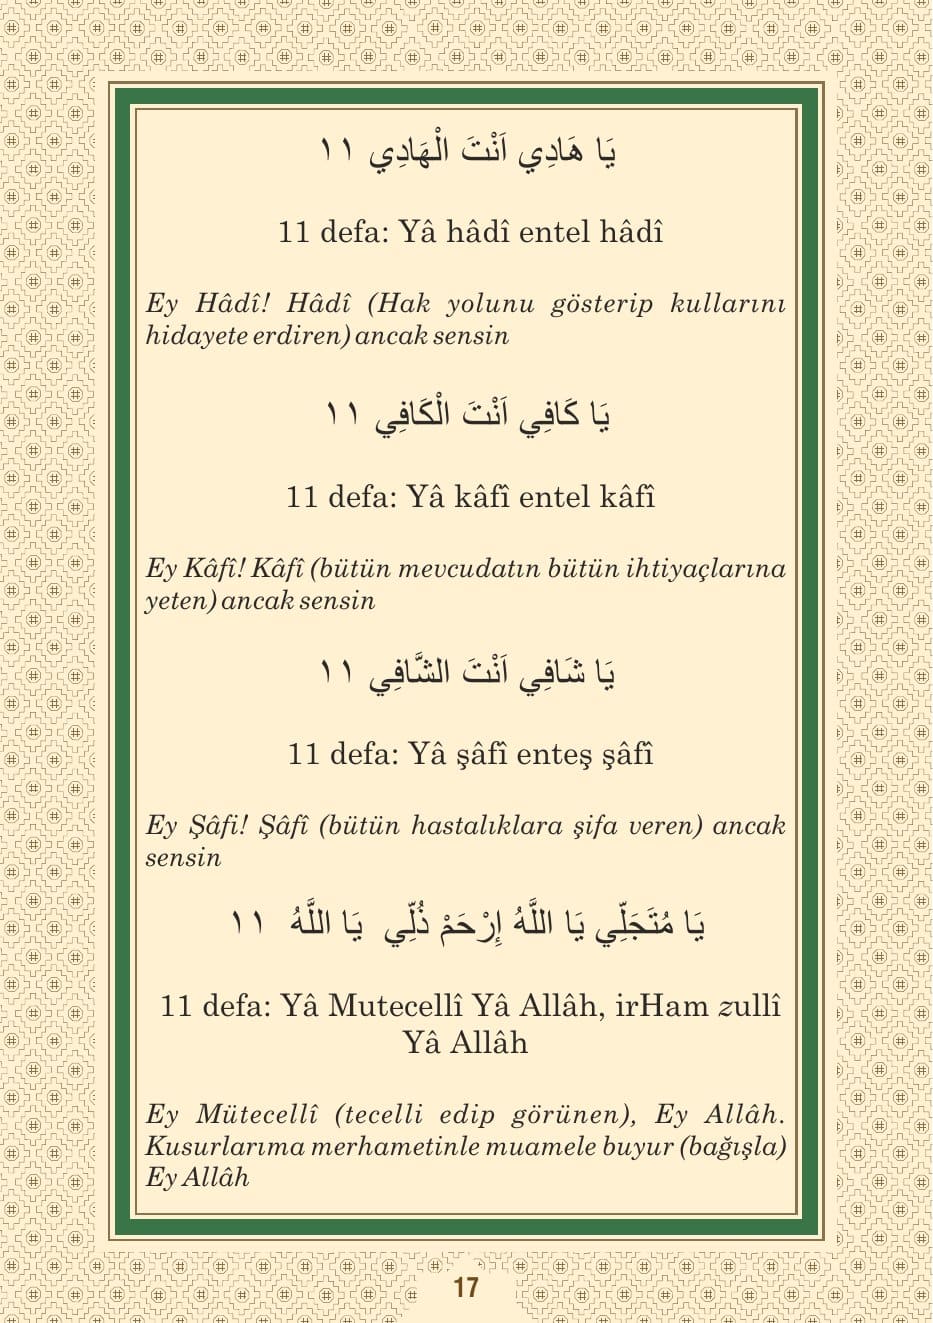 يَا هَادِي اَنْتَ الْهَادِي ١١
11 defa: Yâ hâdî entel hâdî
Ey Hâdî! Hâdî (Hak yolunu gösterip kullarını
hidayete erdiren) ancak sensin
يَا كَافِي اَنْتَ الْكَافِي ١١
11 defa: Yâ kâfî entel kâfî
Ey Kâfî! Kâfî (bütün mevcudatın bütün ihtiyaçlarına
yeten) ancak sensin
يَا شَافِي اَنْتَ الشَّافِي ١١
11 defa: Yâ şâfî enteş şâfî
Ey Şâfi! Şâfî (bütün hastalıklara şifa veren) ancak
sensin
يَا مُتَجَلِّي يَا اللَّهُ إِرْحَمْ ذُلِّي يَا اللَّهُ ١١
11 defa: Yâ Mutecellî Yâ Allâh, irHam zullî
Yâ Allâh
Ey Mütecellî (tecelli edip görünen), Ey Allâh.
Kusurlarıma merhametinle muamele buyur (bağışla)
Ey Allâh
17